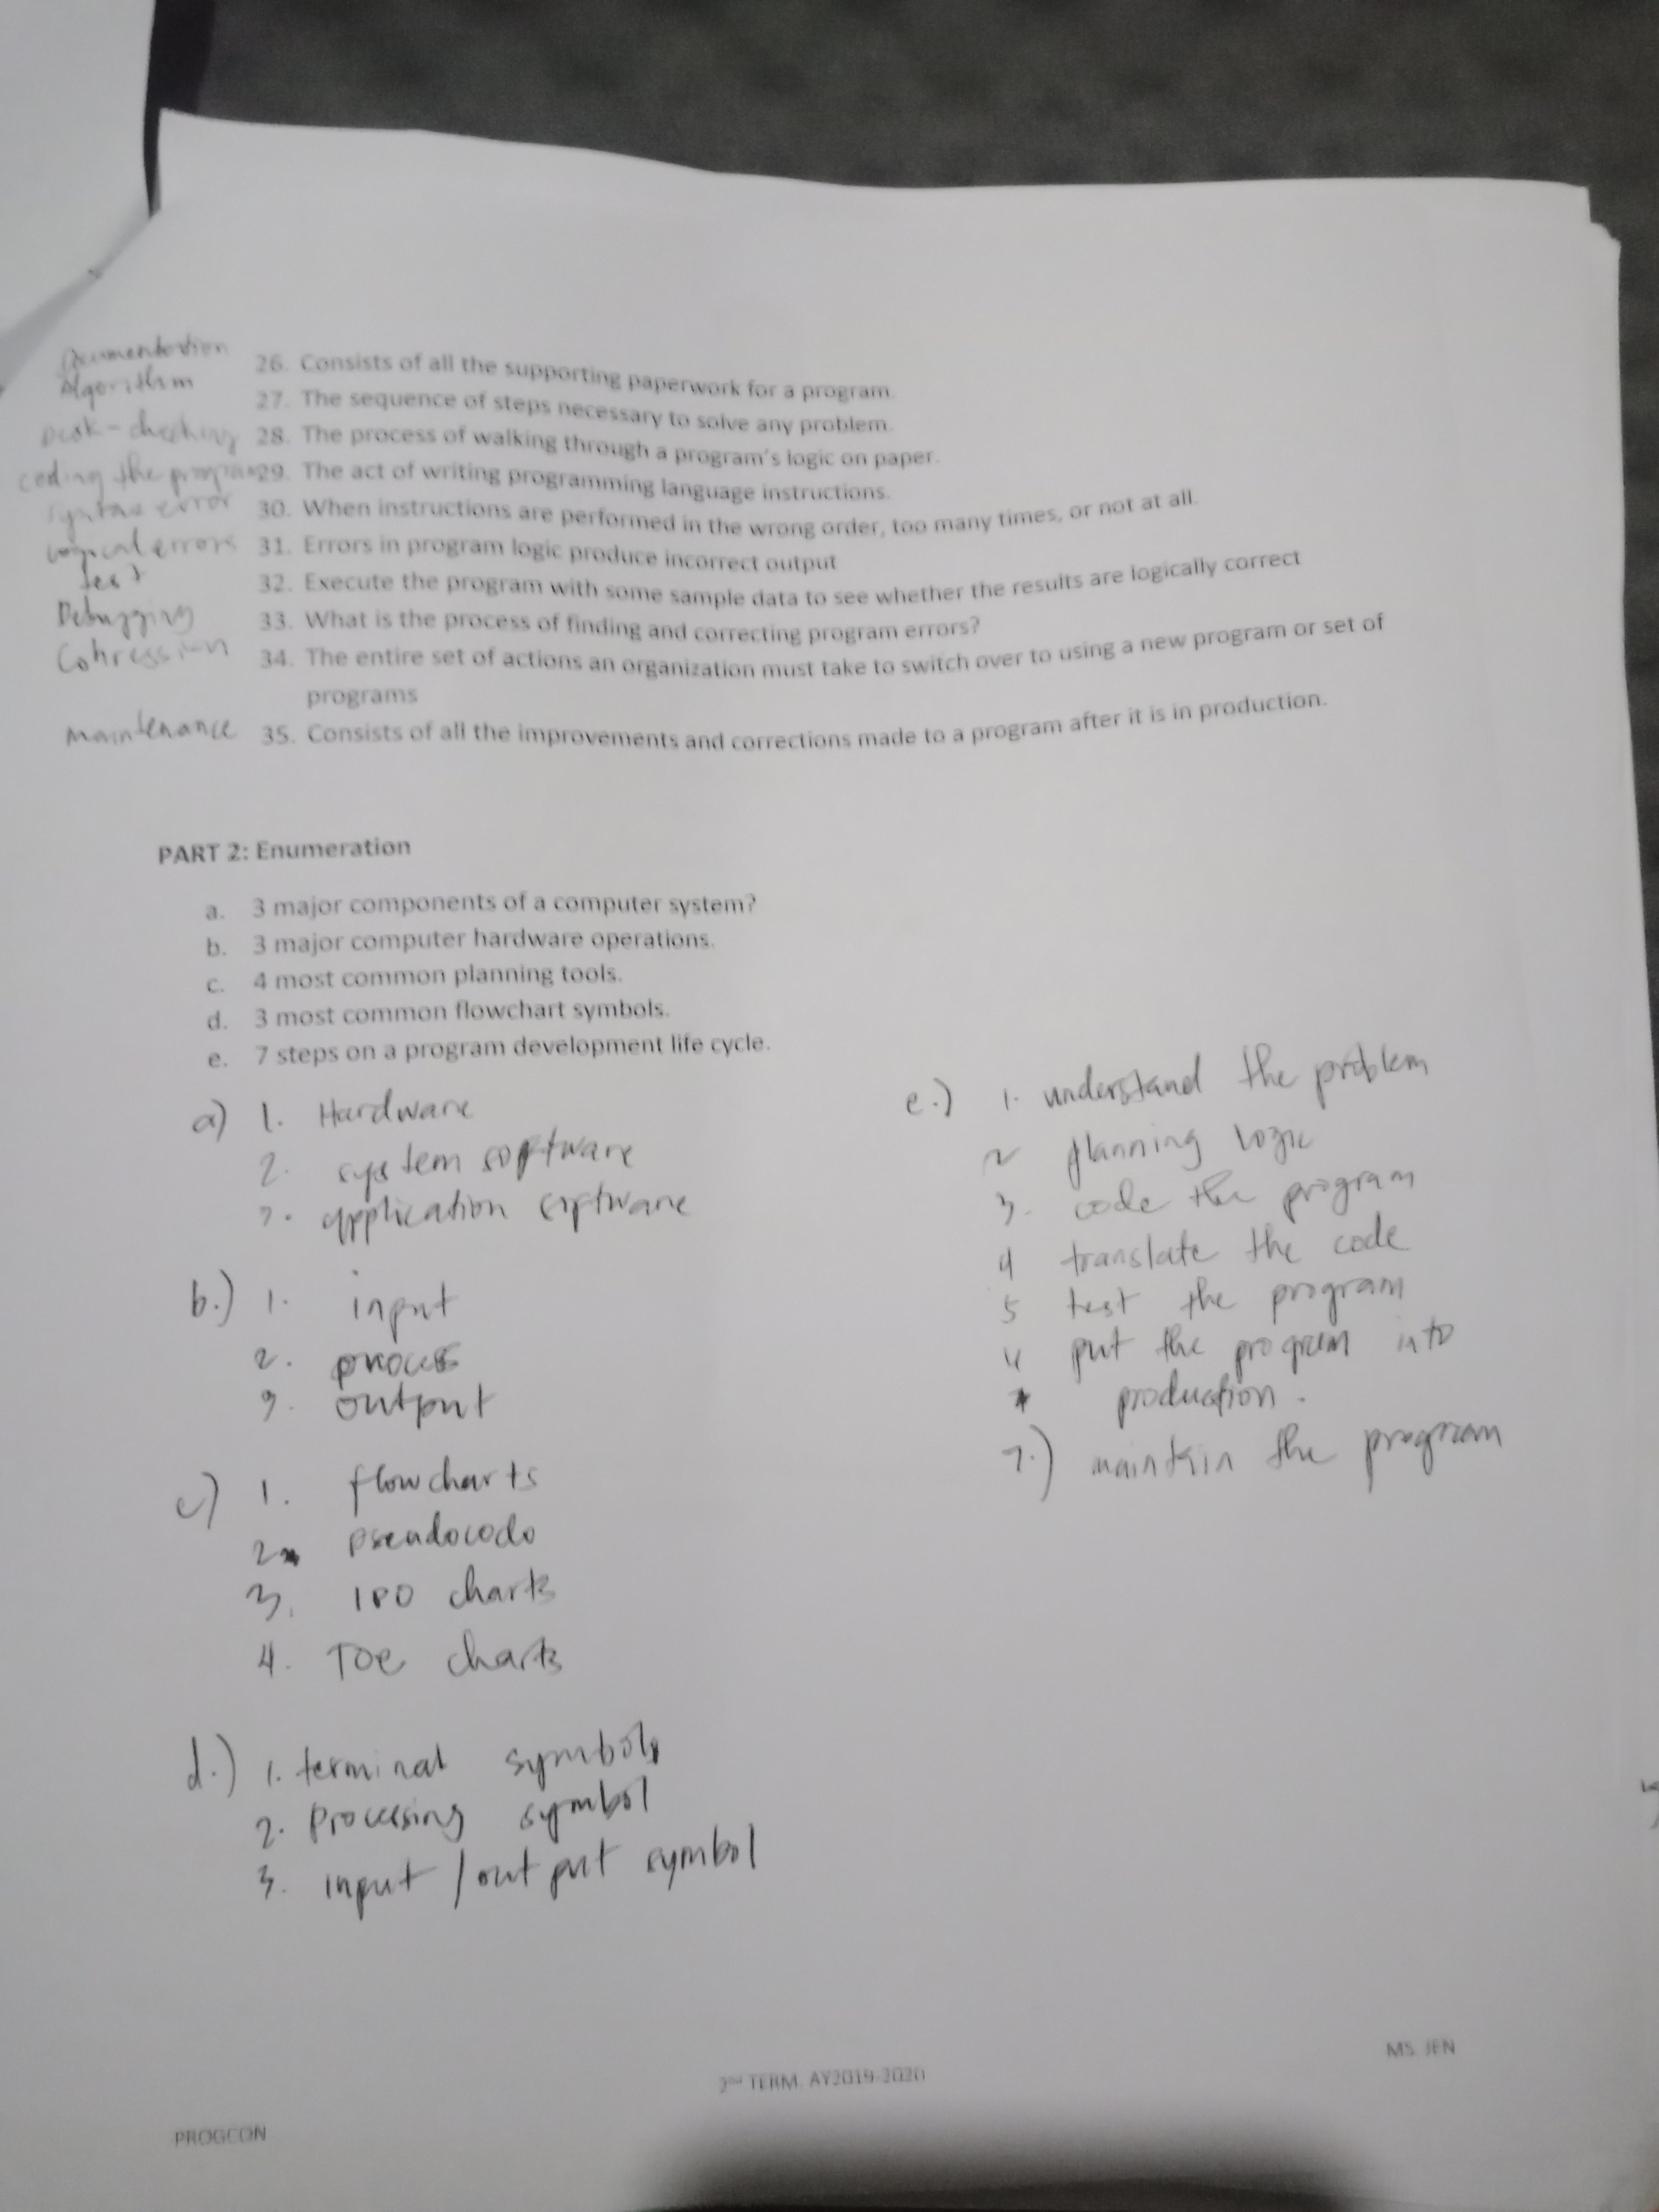 Documentation 26. Consists of all the supporting paperwork for a program.
Algorithm 27. The sequence of steps necessary to solve any problem.
Desk-checking 28. The process of walking through a program's logic on paper.
coding the program 29. The act of writing programming language instructions.
syntax error 30. When instructions are performed in the wrong order, too many times, or not at all.
Logical errors 31. Errors in program logic produce incorrect output
test 32. Execute the program with some sample data to see whether the results are logically correct
Debugging 33. What is the process of finding and correcting program errors?
34. The entire set of actions an organization must take to switch over to using a new program or set of
programs
Maintenance 35. Consists of all the improvements and corrections made to a program after it is in production.
PART 2: Enumeration
a. 3 major components of a computer system?
b. 3 major computer hardware operations.
c. 4 most common planning tools.
d. 3 most common flowchart symbols.
e. 7 steps on a program development life cycle.
a) 1. Hardware
2. system software
3. application software
b.) 1. input
2. process
3. output
c) 1. flowcharts
2. pseudocode
3. IPO charts
4. TOE charts
d.) 1. terminal symbols
2. Processing symbol
3. input / output symbol
e.) 1. understand the problem
2 planning logic
3. code the program
4 translate the code
5 test the program
put the program into
production.
7.) maintain the program
MS. JEN
2nd TERM, AY2019-2020
PROGCON